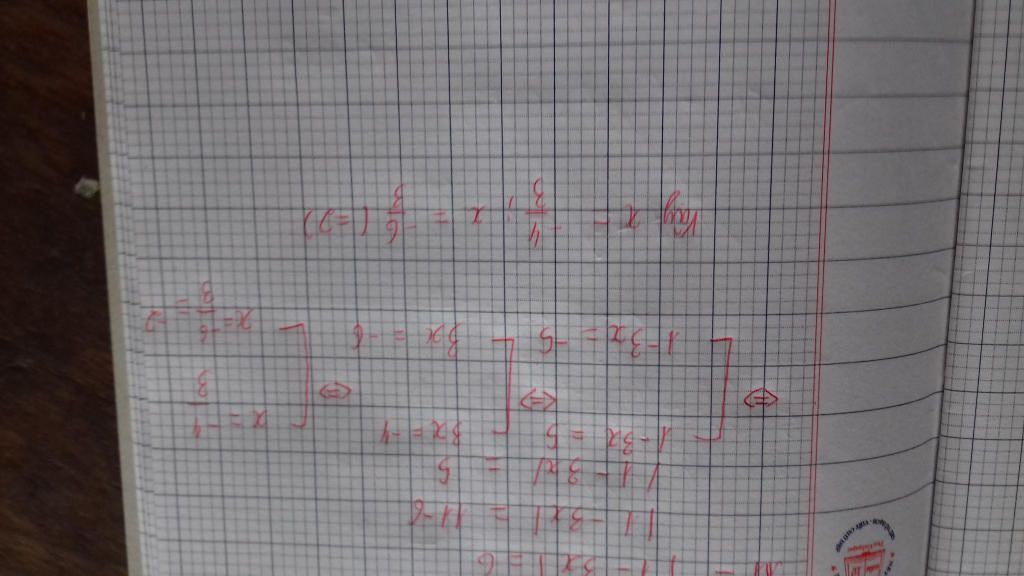 11 - |1 - 3x| = 6
|1 - 3x| = 11 - 6
|1 - 3x| = 5
⇔ [ 1 - 3x = 5 ⇔ [ 3x = -4 ⇔ [ x = -4/3
1 - 3x = -5 3x = -6 x = -6/3 = -2
Vậy x = -4/3 ; x = -6/3 (= 2)